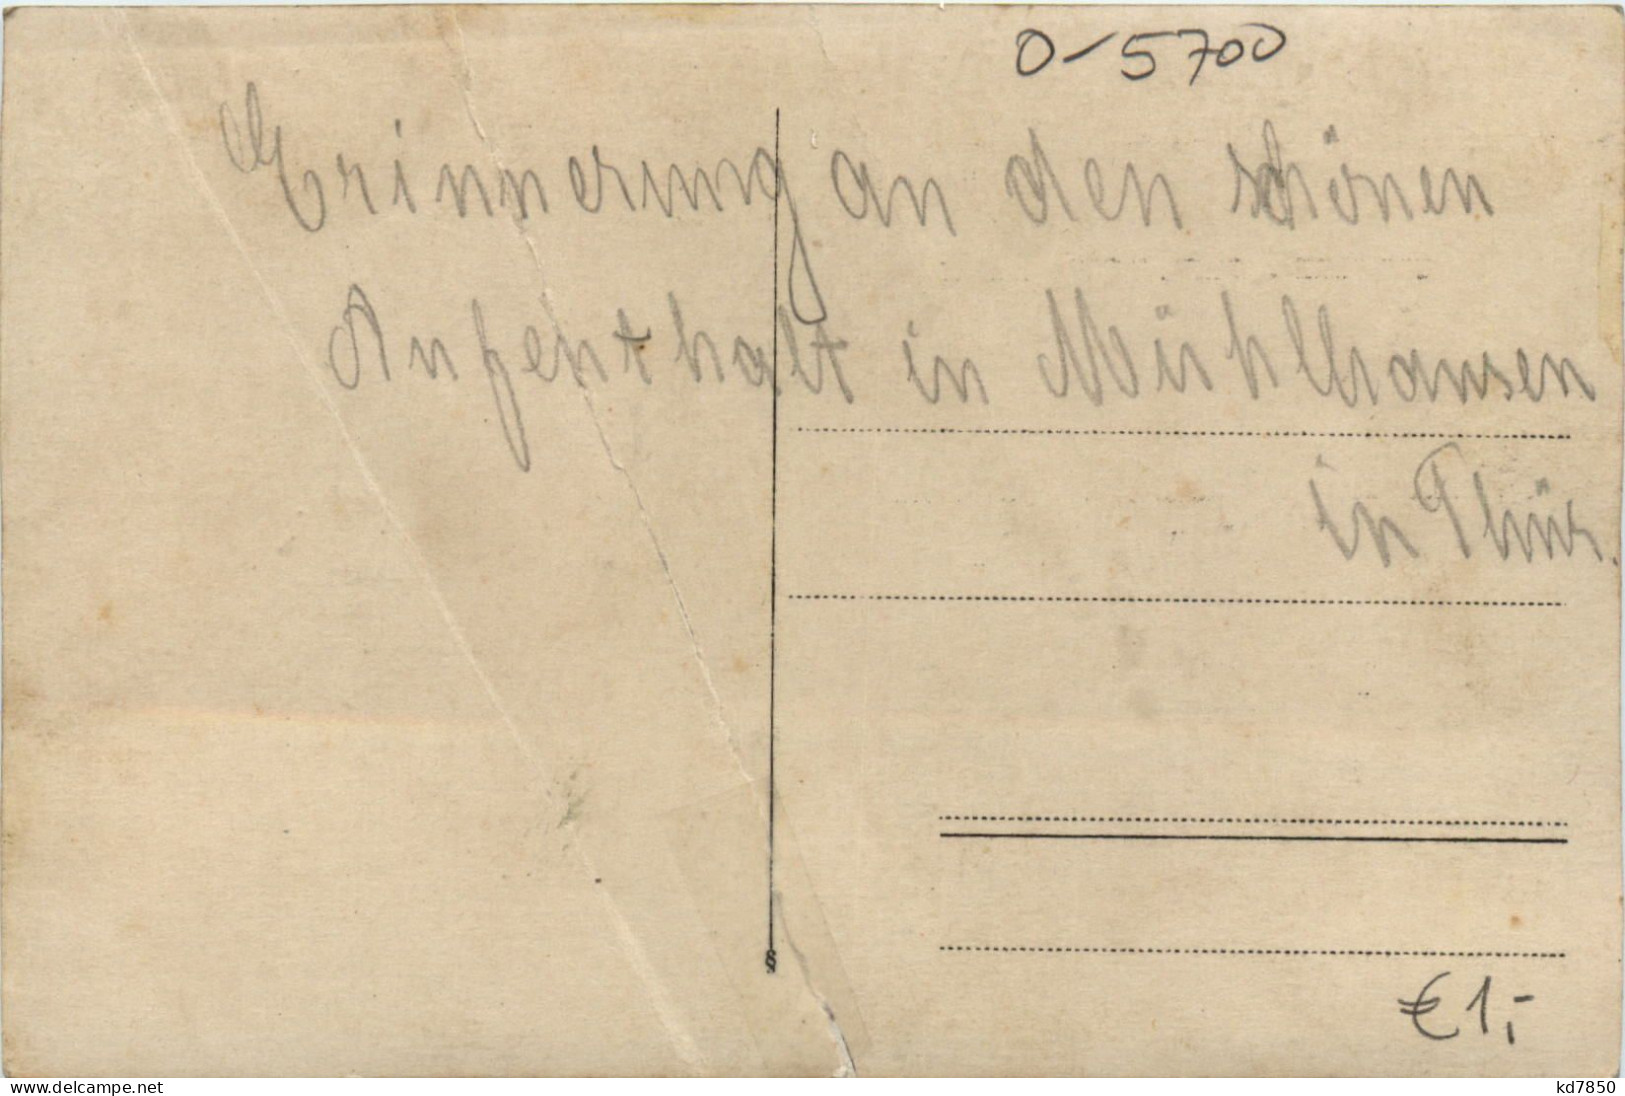 0-5700
Erinnerung an den schönen
Aufenthalt in Mühlhausen
in Thür.
§
€ 1,-
www.delcampe.net
kd7850